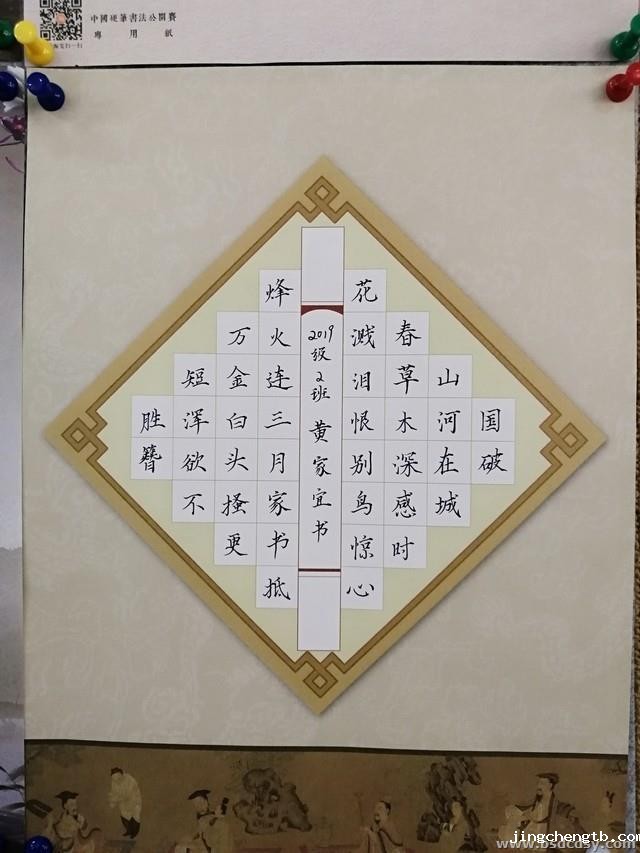 中國硬筆書法公開賽
專用紙
国破
山河在城
春草木深感时
花溅泪恨别鸟惊心
2019级2班 黄家宜书
烽火连三月家书抵
万金白头搔更
短浑欲不
胜簪
jingchengtb.com
www.bsdcdsy.com